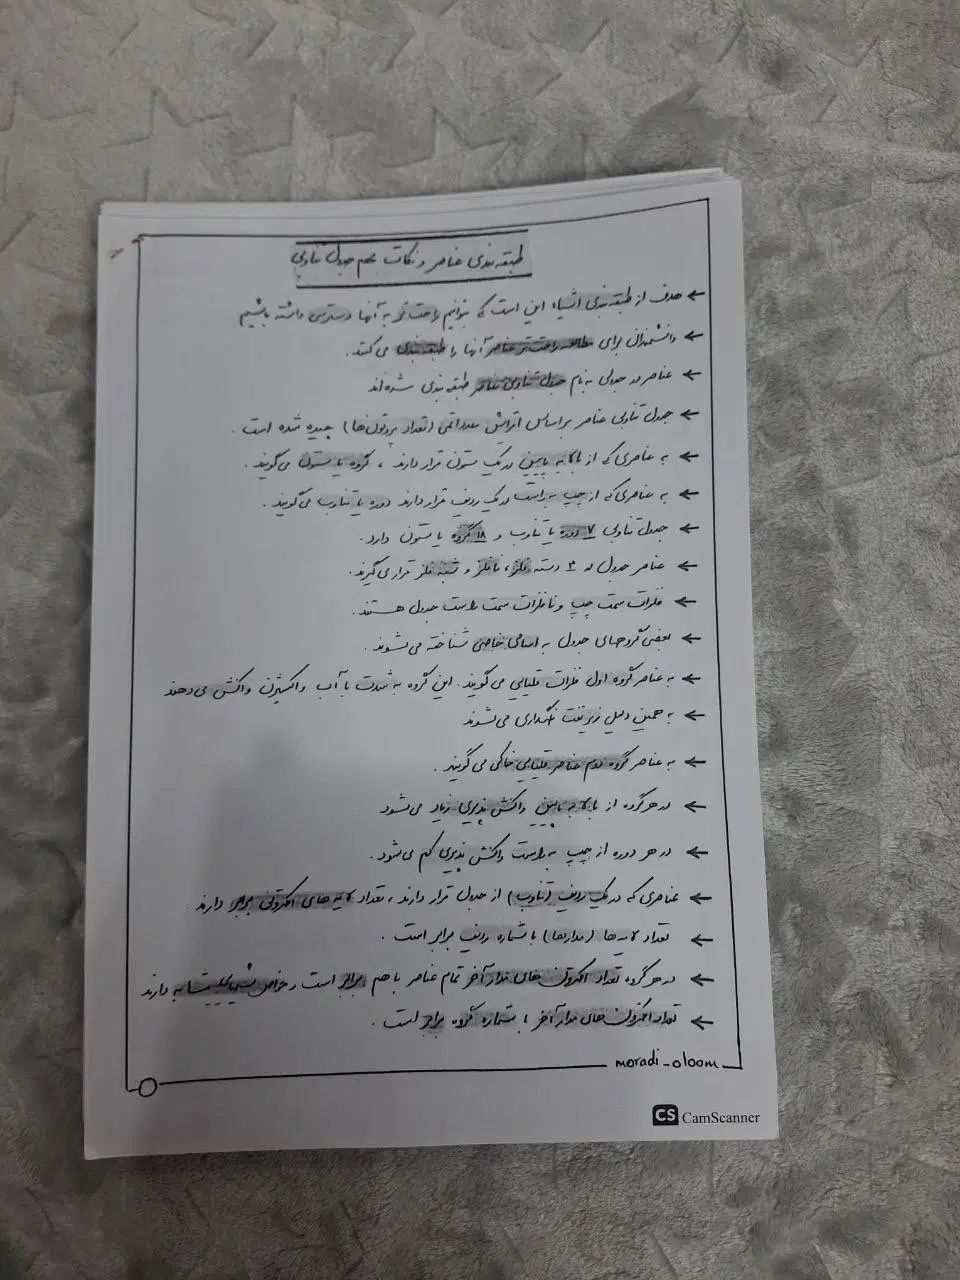 طبقه بندی عناصر و نکات مهم جدول تناوبی
← هدف از طبقه بندی اشیاء این است که بتوانیم راحت تر به آنها دسترسی داشته باشیم
← دانشمندان برای مطالعه راحت تر عناصر آنها را طبقه بندی می کنند.
← عناصر در جدولی به نام جدول تناوبی عناصر طبقه بندی شده اند
← جدول تناوبی عناصر براساس افزایش عدد اتمی (تعداد پروتون ها) چیده شده است.
← به عناصری که از بالا به پایین در یک ستون قرار دارند، گروه یا ستون می گویند.
← به عناصری که از چپ به راست در یک ردیف قرار دارند دوره یا تناوب می گویند.
← جدول تناوبی ۷ دوره یا تناوب و ۱۸ گروه یا ستون دارد.
← عناصر جدول در ۳ دسته فلز، نافلز و شبه فلز قرار می گیرند.
← فلزات سمت چپ و نافلزات سمت راست جدول هستند.
← بعضی گروههای جدول به اسامی خاصی شناخته می شوند.
← به عناصر گروه اول فلزات قلیایی می گویند. این گروه به شدت با آب و اکسیژن واکنش می دهند
← به همین دلیل زیر نفت نگهداری می شوند
← به عناصر گروه دوم عناصر قلیایی خاکی می گویند.
← در هر گروه از بالا به پایین واکنش پذیری زیاد می شود
← در هر دوره از چپ به راست واکنش پذیری کم می شود.
← عناصری که در یک ردیف (تناوب) از جدول قرار دارند، تعداد لایه های الکترونی برابر دارند
← تعداد لایه ها (مدارها) با شماره ردیف برابر است.
← در هر گروه تعداد الکترون های مدار آخر تمام عناصر با هم برابر است و خواص شیمیایی مشابه دارند
← تعداد الکترون های مدار آخر با شماره گروه برابر است.
moradi_oloom
CS CamScanner